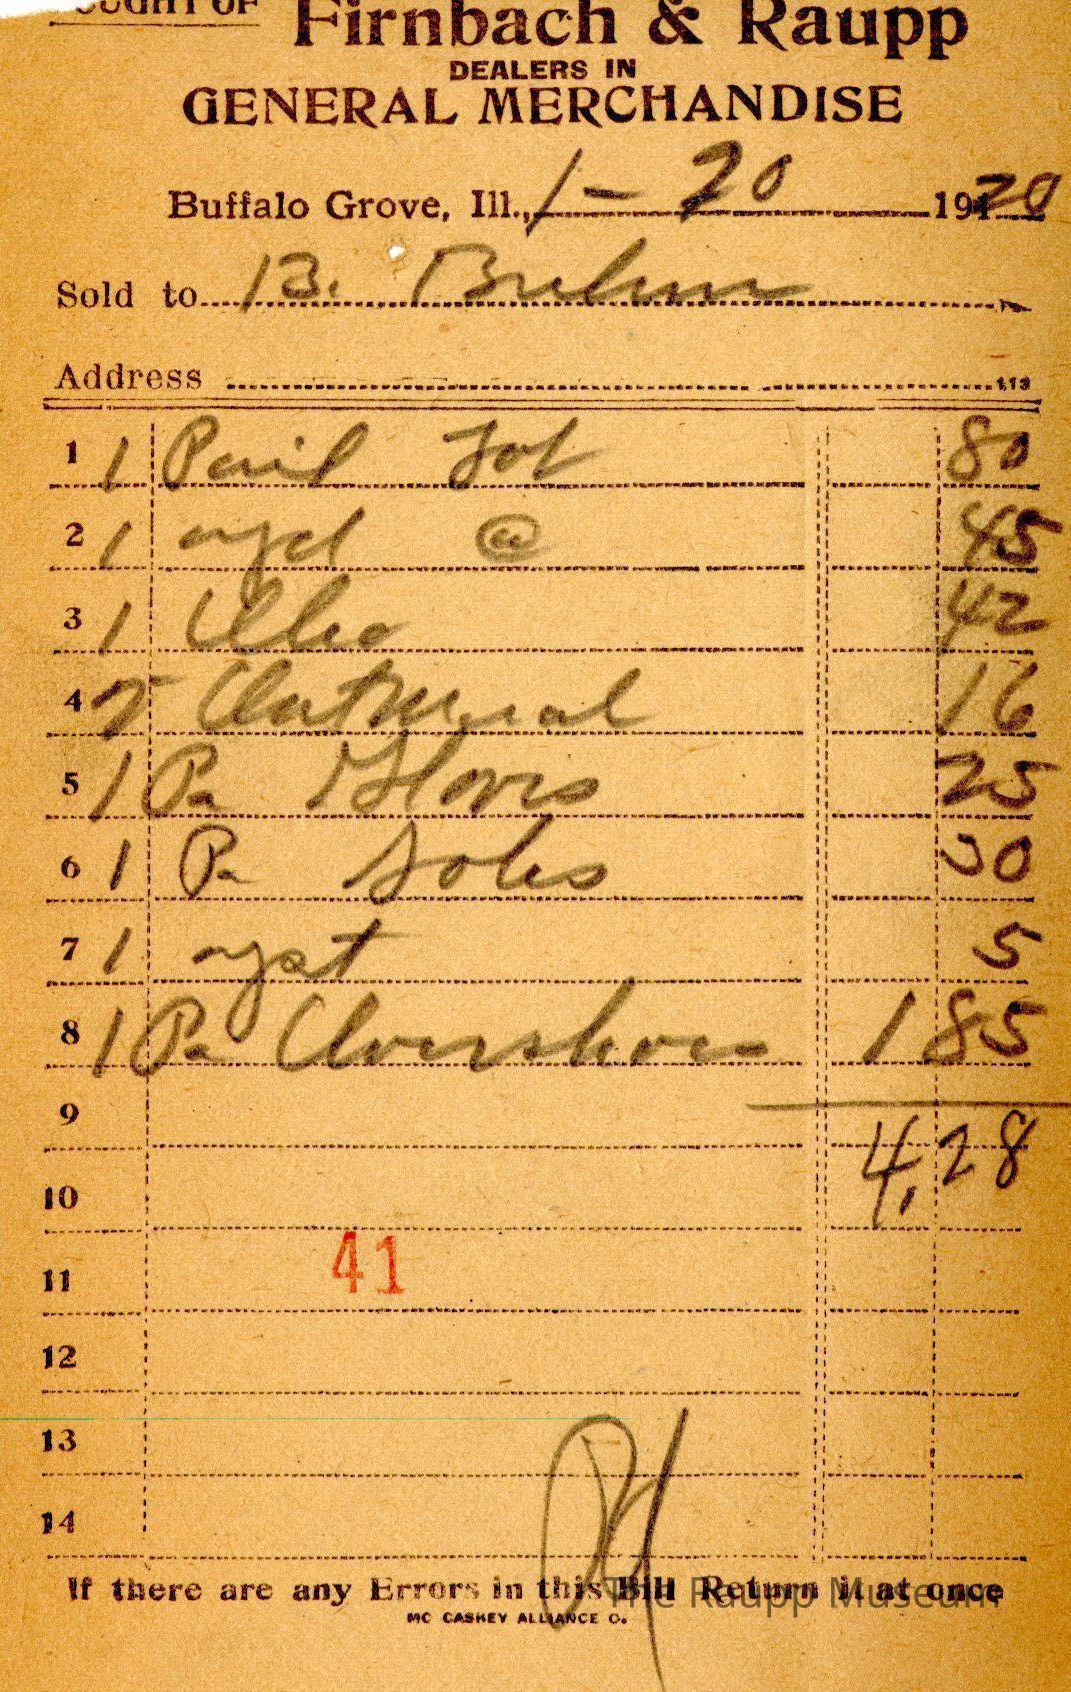 BOUGHT OF Firnbach & Raupp
DEALERS IN
GENERAL MERCHANDISE
Buffalo Grove, Ill., 1-20 1920
Sold to B.
Address 113
1 1 Pail 80
2 1 @ 45
3 1 Oleo 42
4 2 Oatmeal 16
5 1 Pa Gloves 25
6 1 Pa Soles 30
7 1 yst 5
8 1 Pa Overshoes 1 85
9
4,28
10
11 41
12
13
14
If there are any Errors in this Bill Return it at once
MC CASKEY ALLIANCE O.
The Raupp Museum